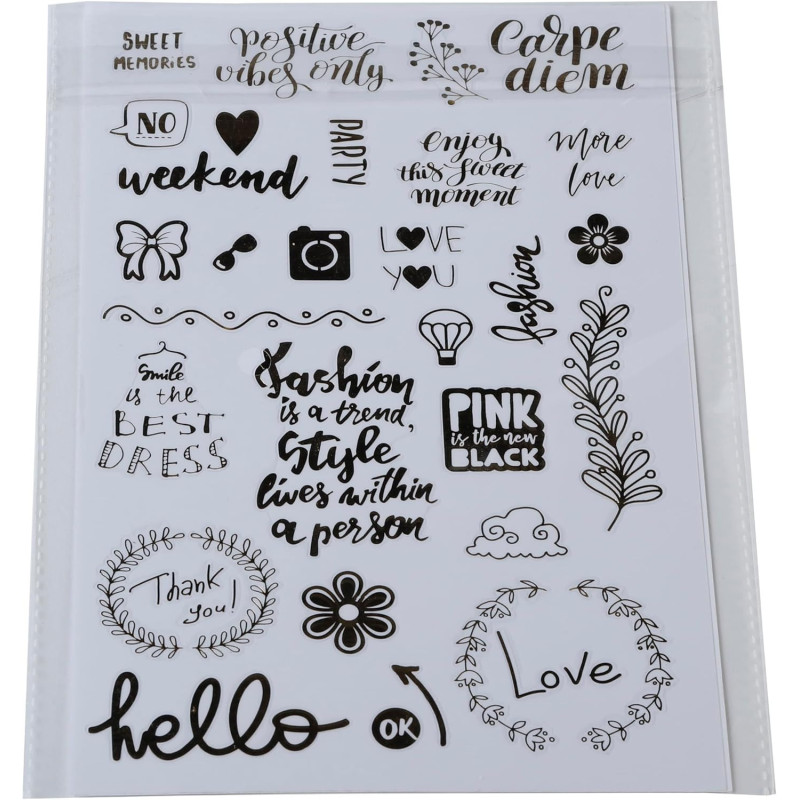 SWEET
MEMORIES
positive
vibes only
Carpe
diem
NO
weekend
PARTY
enjoy
this sweet
moment
More
love
LOVE
YOU
fashion
Smile
is the
BEST
DRESS
Fashion
is a trend,
Style
lives within
a person
PINK
is the new
BLACK
Thank
you!
Love
hello
OK